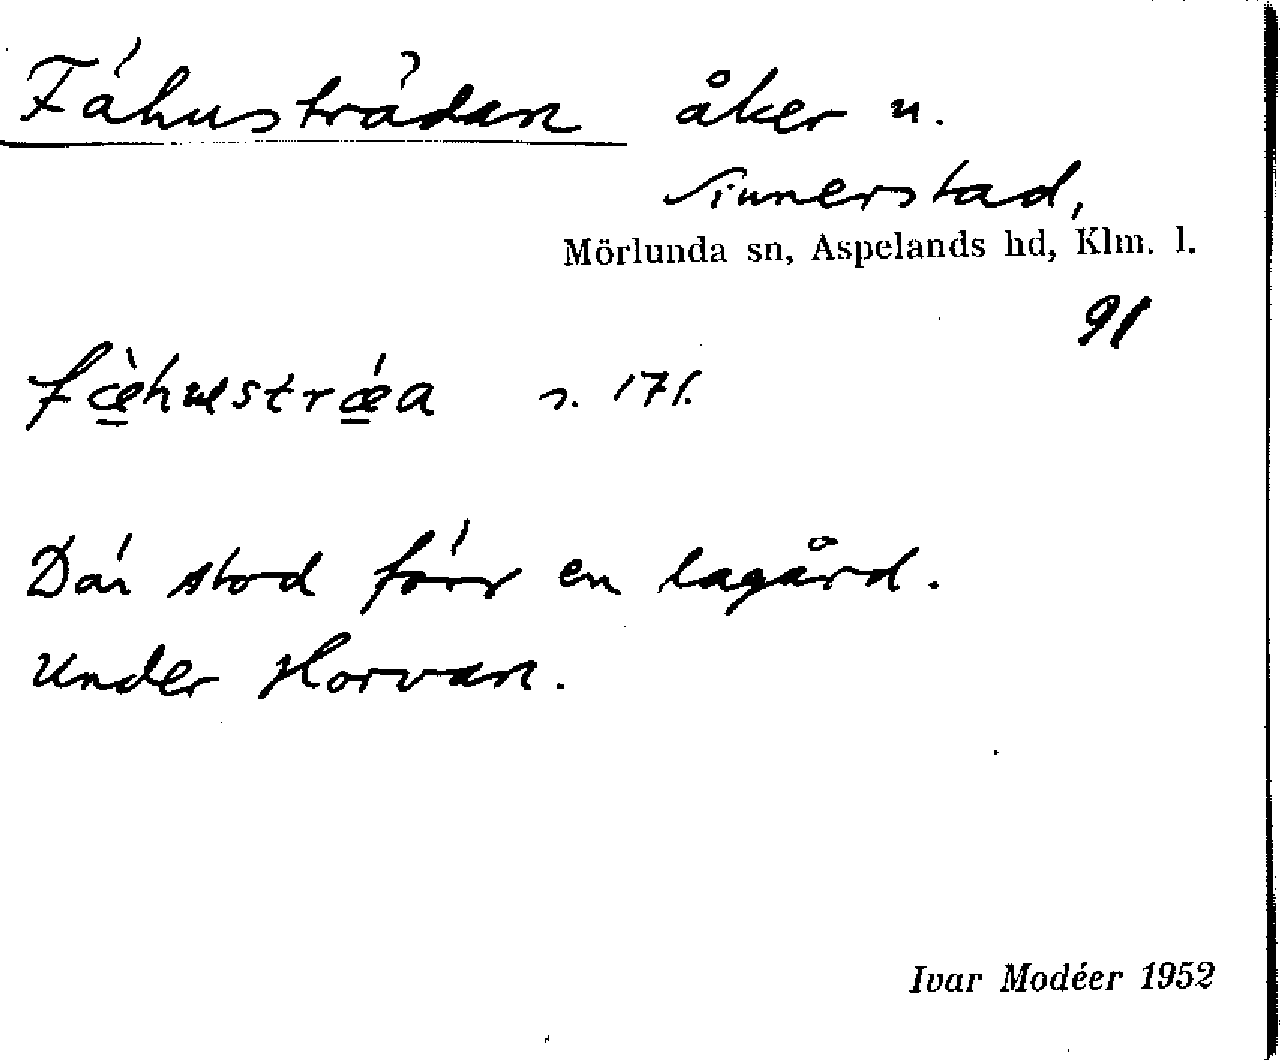 Fähusträdan åker u.
Sinnerstad,
Mörlunda sn, Aspelands hd, Klm. l.
91
fæ̀hustrǽa s. 171.
Där stod förr en lagård.
Under Horvan.
Ivar Modéer 1952